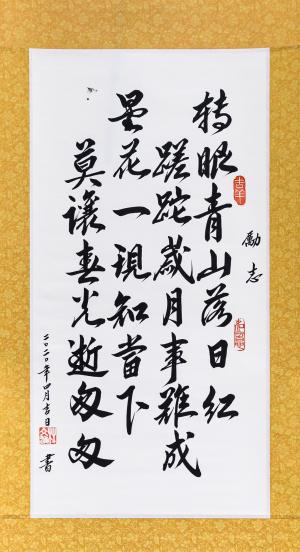 勵志
轉眼青山落日紅
蹉跎歲月事難成
曇花一現知當下
莫讓春光逝匆匆
二〇二〇年四月吉日
書